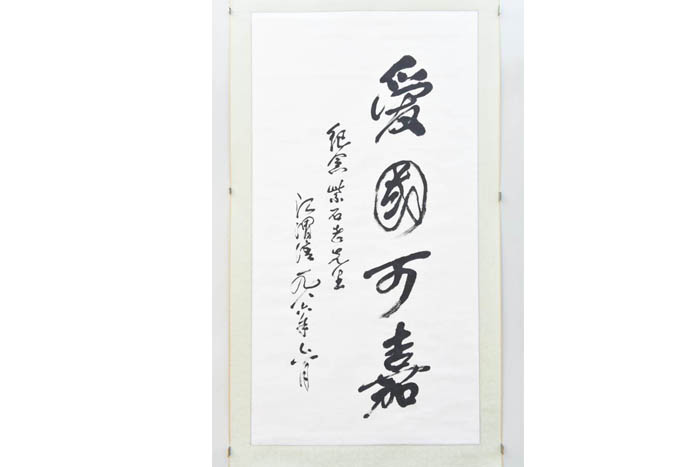 愛國可嘉
紀念紫石老先生
江渭清 一九八六年六月